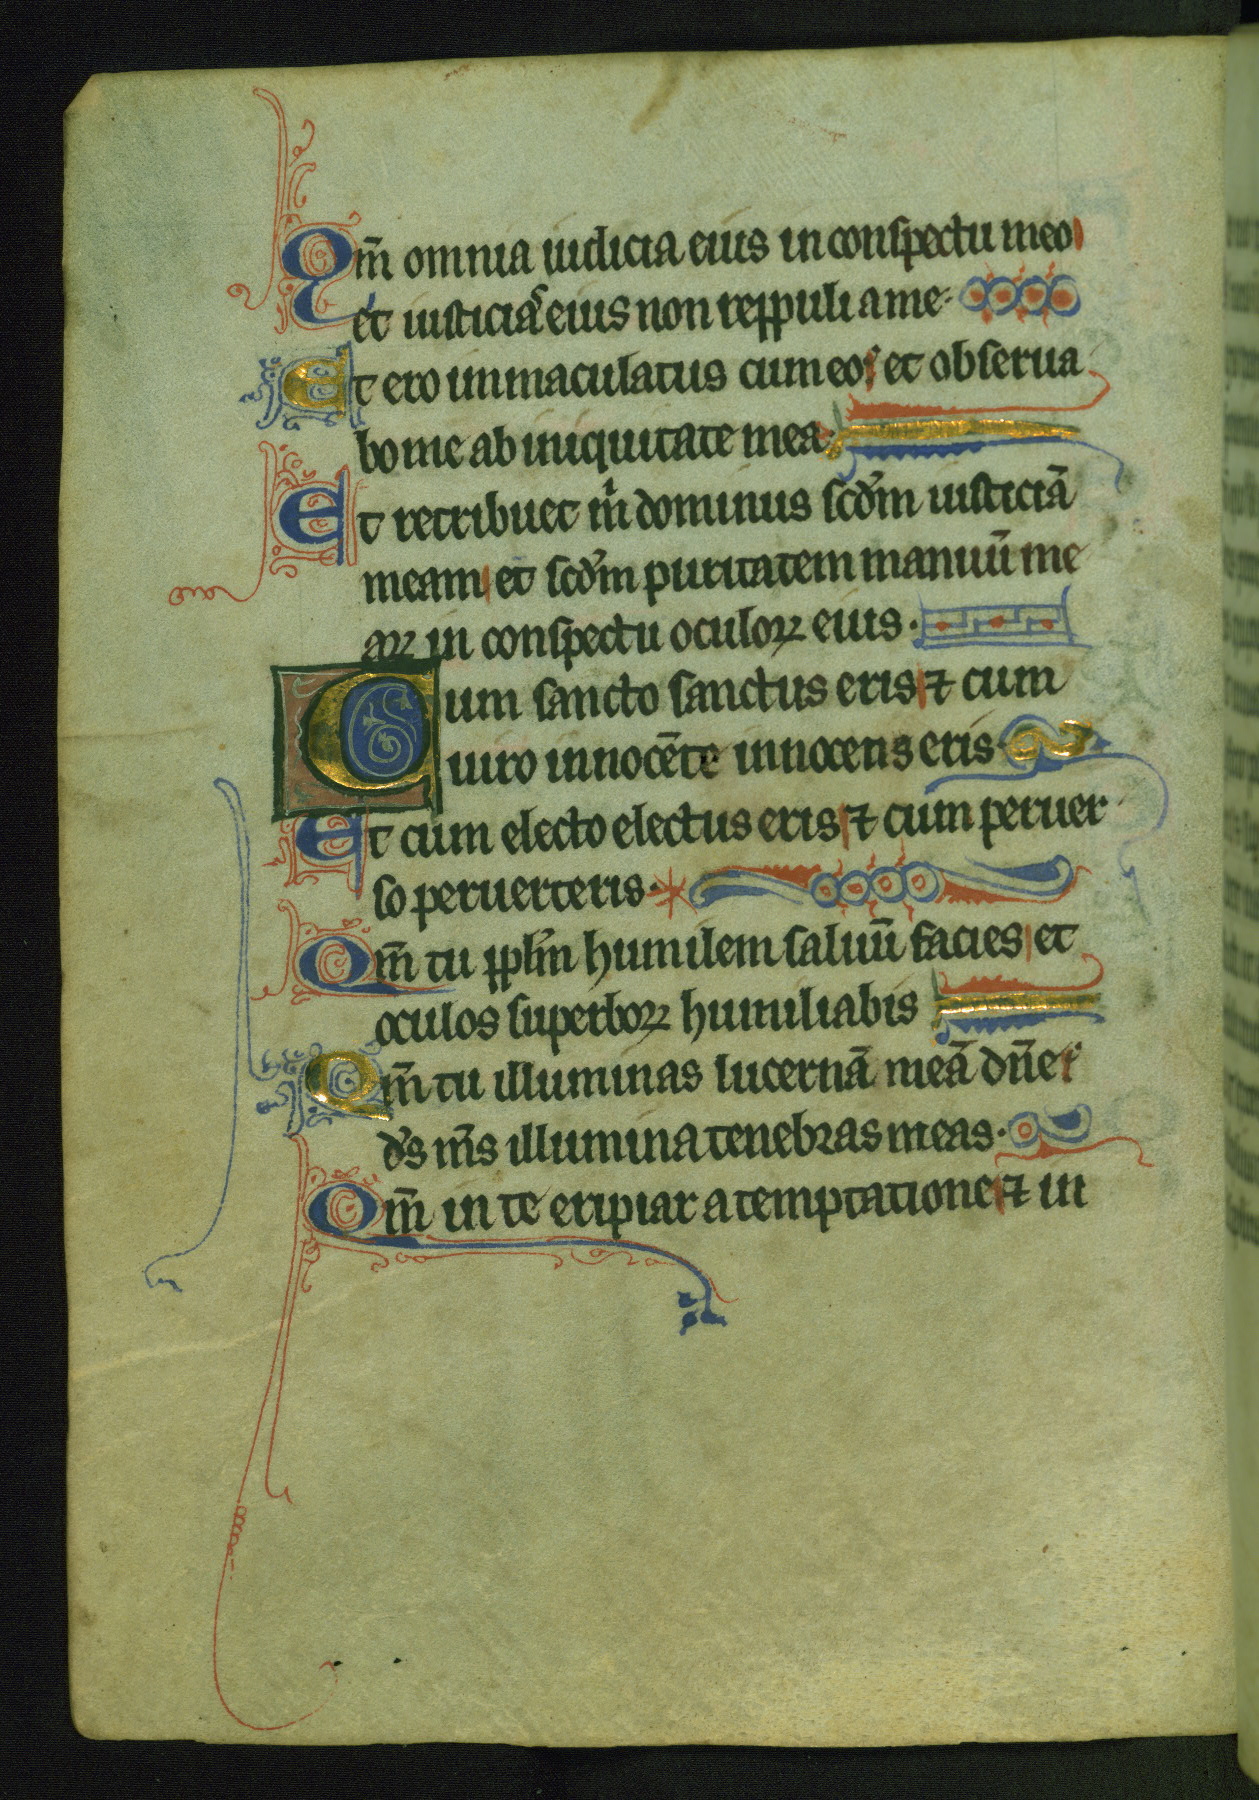 Qm̄ omnia iudicia eius in conspectu meo
et iusticias eius non reppuli a me·
Et ero inmaculatus cum eo et obserua
bo me ab iniquitate mea·
Et retribuet m̄ dominus scd̄m iusticiā
meam et scd̄m puritatem manuū me
aꝝ in conspectu oculoꝝ eius·
Cum sancto sanctus eris ⁊ cum
uiro innocēte innocens eris·
Et cum electo electus eris ⁊ cum peruer
so peruerteris·
Qm̄ tu pplm̄ humilem saluū facies et
oculos superboꝝ humiliabis
Qm̄ tu illuminas lucernā meā dn̄e
ds̄ ms̄ illumina tenebras meas·
Qm̄ in te eripiar a temptatione ⁊ in